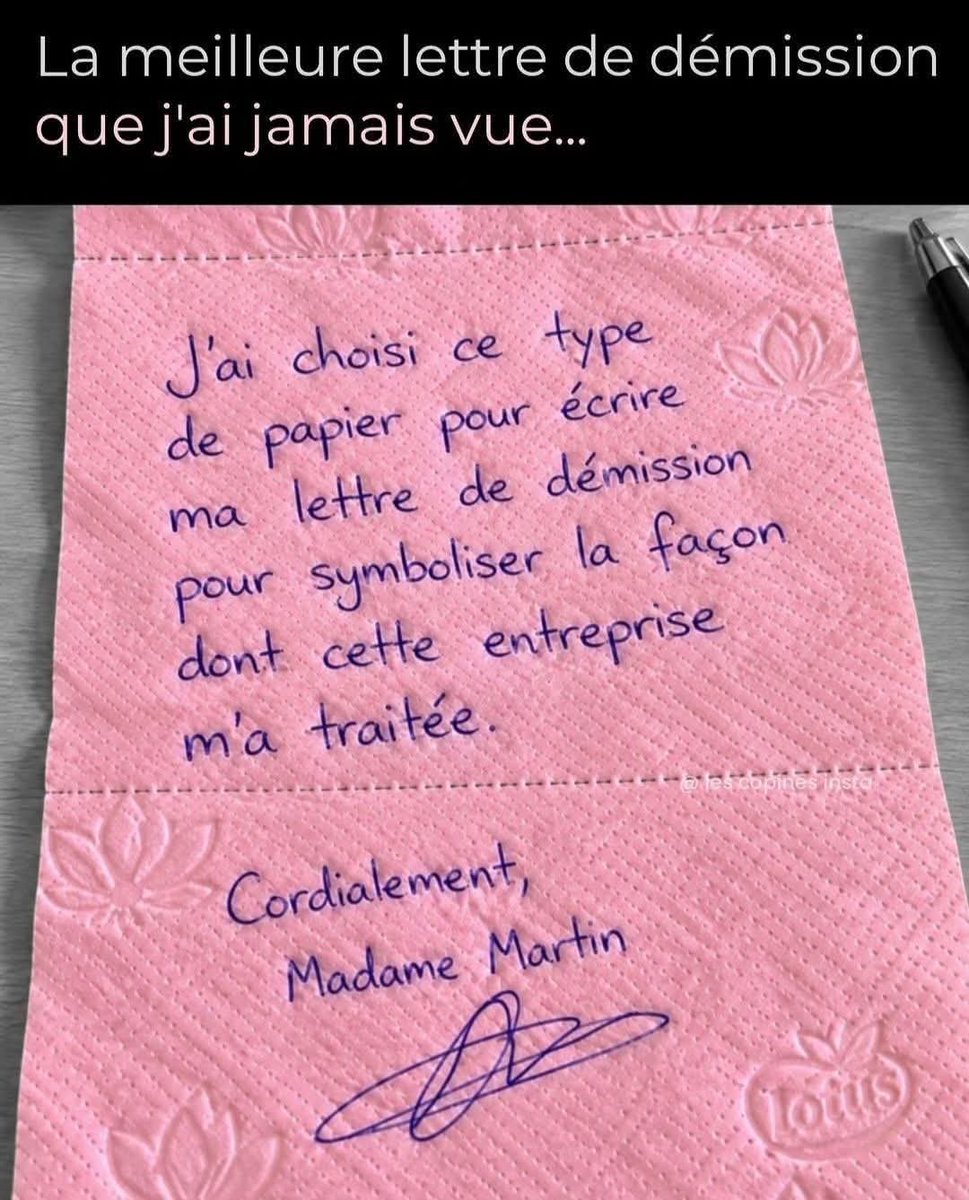 La meilleure lettre de démission
que j'ai jamais vue...
J'ai choisi ce type
de papier pour écrire
ma lettre de démission
pour symboliser la façon
dont cette entreprise
m'a traitée.
@ les copines insta
Cordialement,
Madame Martin
lotus